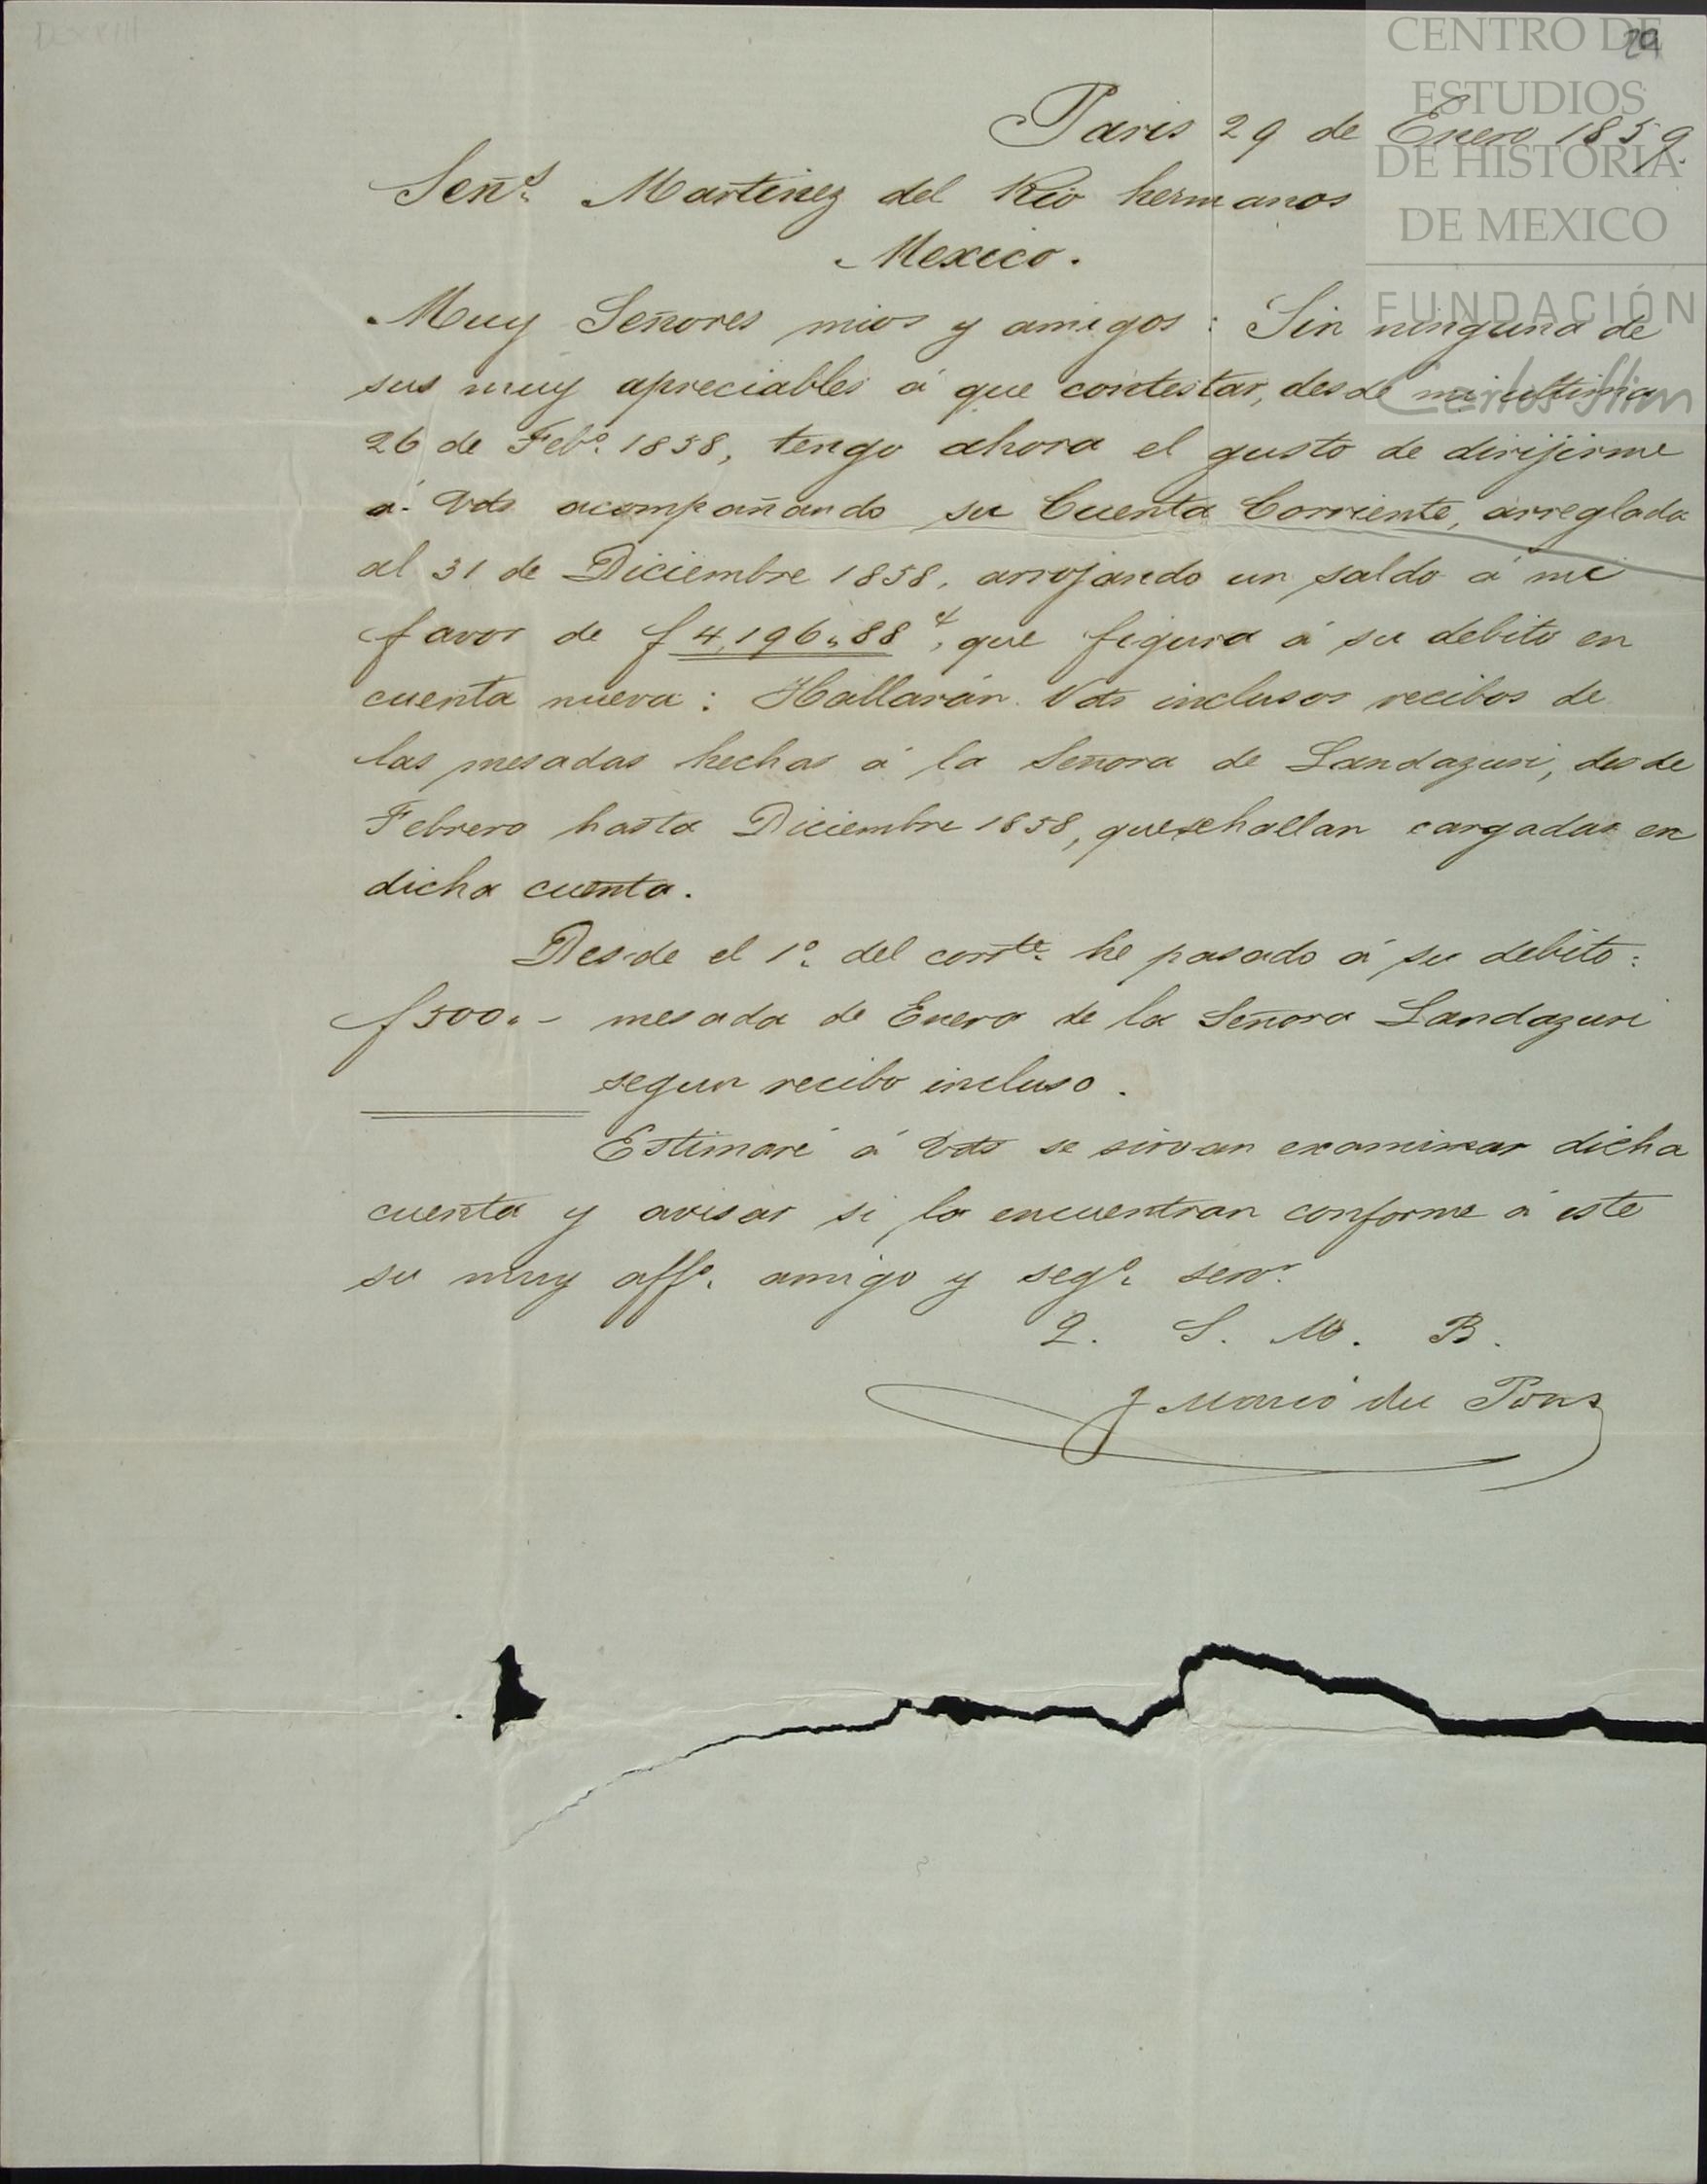 29
CENTRO DE
ESTUDIOS
DE HISTORIA
DE MEXICO
FUNDACIÓN
Carlos Slim
Paris 29 de Enero 1859.
Señ.s Martinez del Rio hermanos
Mexico.
Muy Señores mios y amigos: Sin ninguna de
sus muy apreciables á que contestar, desde mi ultima
26 de Feb.o 1858, tengo ahora el gusto de dirijirme
á Vds acompañando su Cuenta Corriente, arreglada
al 31 de Diciembre 1858, arrojando un saldo á mi
favor de f 4,196.88 , que figura á su debito en
cuenta nueva: Hallarán Vds inclusos recibos de
las mesadas hechas á la Señora de Landazuri, desde
Febrero hasta Diciembre 1858, que se hallan cargadas en
dicha cuenta.
Desde el 1.o del corr.te he pasado á su debito:
f 500.- mesada de Enero de la Señora Landazuri
segun recibo incluso.
Estimaré á Vds se sirvan examinar dicha
cuenta y avisar si la encuentran conforme á este
su muy aff.o amigo y seg.o serv.r
Q. S. M. B.
J Marcó del Pont